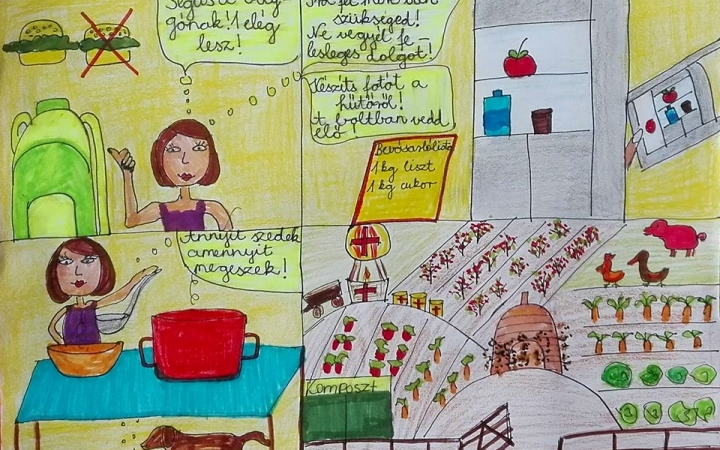 gónak! 1 elég
lesz!
szükséged!
Ne vegyél fe-
lesleges dolgot!
Készíts fotót a
hűtőről!
A boltban vedd
elő!
Bevásárlólista
1 kg liszt
1 kg cukor
Annyit szedek
amennyit
megeszek!
Komposzt